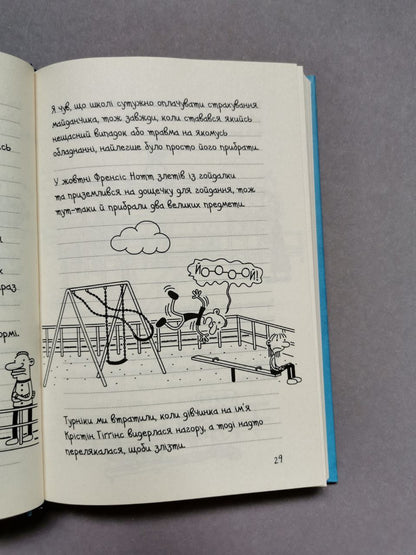 Я чув, що школі сутужно оплачувати страхування
майданчика, тож завжди, коли ставався якийсь
нещасний випадок або травма на якомусь
обладнанні, найлегше було просто його прибрати.
У жовтні Френсіс Нотт злетів із гойдалки
та приземлився на дощечку для гойдання, тож
тут-таки й прибрали два великих предмети.
ЙО-О-О-ОЙ!
Турніки ми втратили, коли дівчинка на ім'я
Крістін Гіґґінс видерлася нагору, а тоді надто
перелякалася, щоби злізти.
29